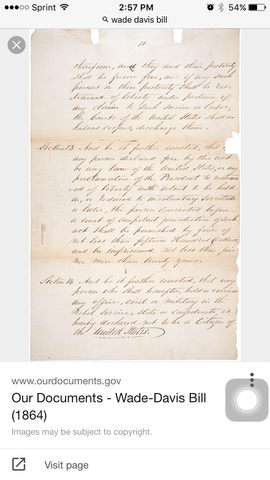 Sprint 2:57 PM 54%
wade davis bill
therefrom, and they and their posterity
shall be forever free. And if any such
person or their posterity shall be res-
trained of liberty under pretence of
any claim to such service or labor,
the Courts of the United States shall on
habeas corpus, discharge them.
Section 13 And be it further enacted, that if
any person declared free by this act
or any law of the United States, or any
proclamation of the President be restrain-
ed of liberty with intent to be held
in, or reduced to involuntary Servitude
or labor, the person convicted before
a court of competent jurisdiction of such
act shall be punished by fine of
not less than fifteen Hundred dollars
and be imprisoned not less than five
nor more than twenty years.
Section 14 And be it further enacted, that every
person who shall hereafter hold or exercise
any office, civil or military, in the
Rebel service, State or Confederate, is
hereby declared not to be a Citizen of
the United States.
www.ourdocuments.gov
Our Documents - Wade-Davis Bill
(1864)
Images may be subject to copyright.
Visit page